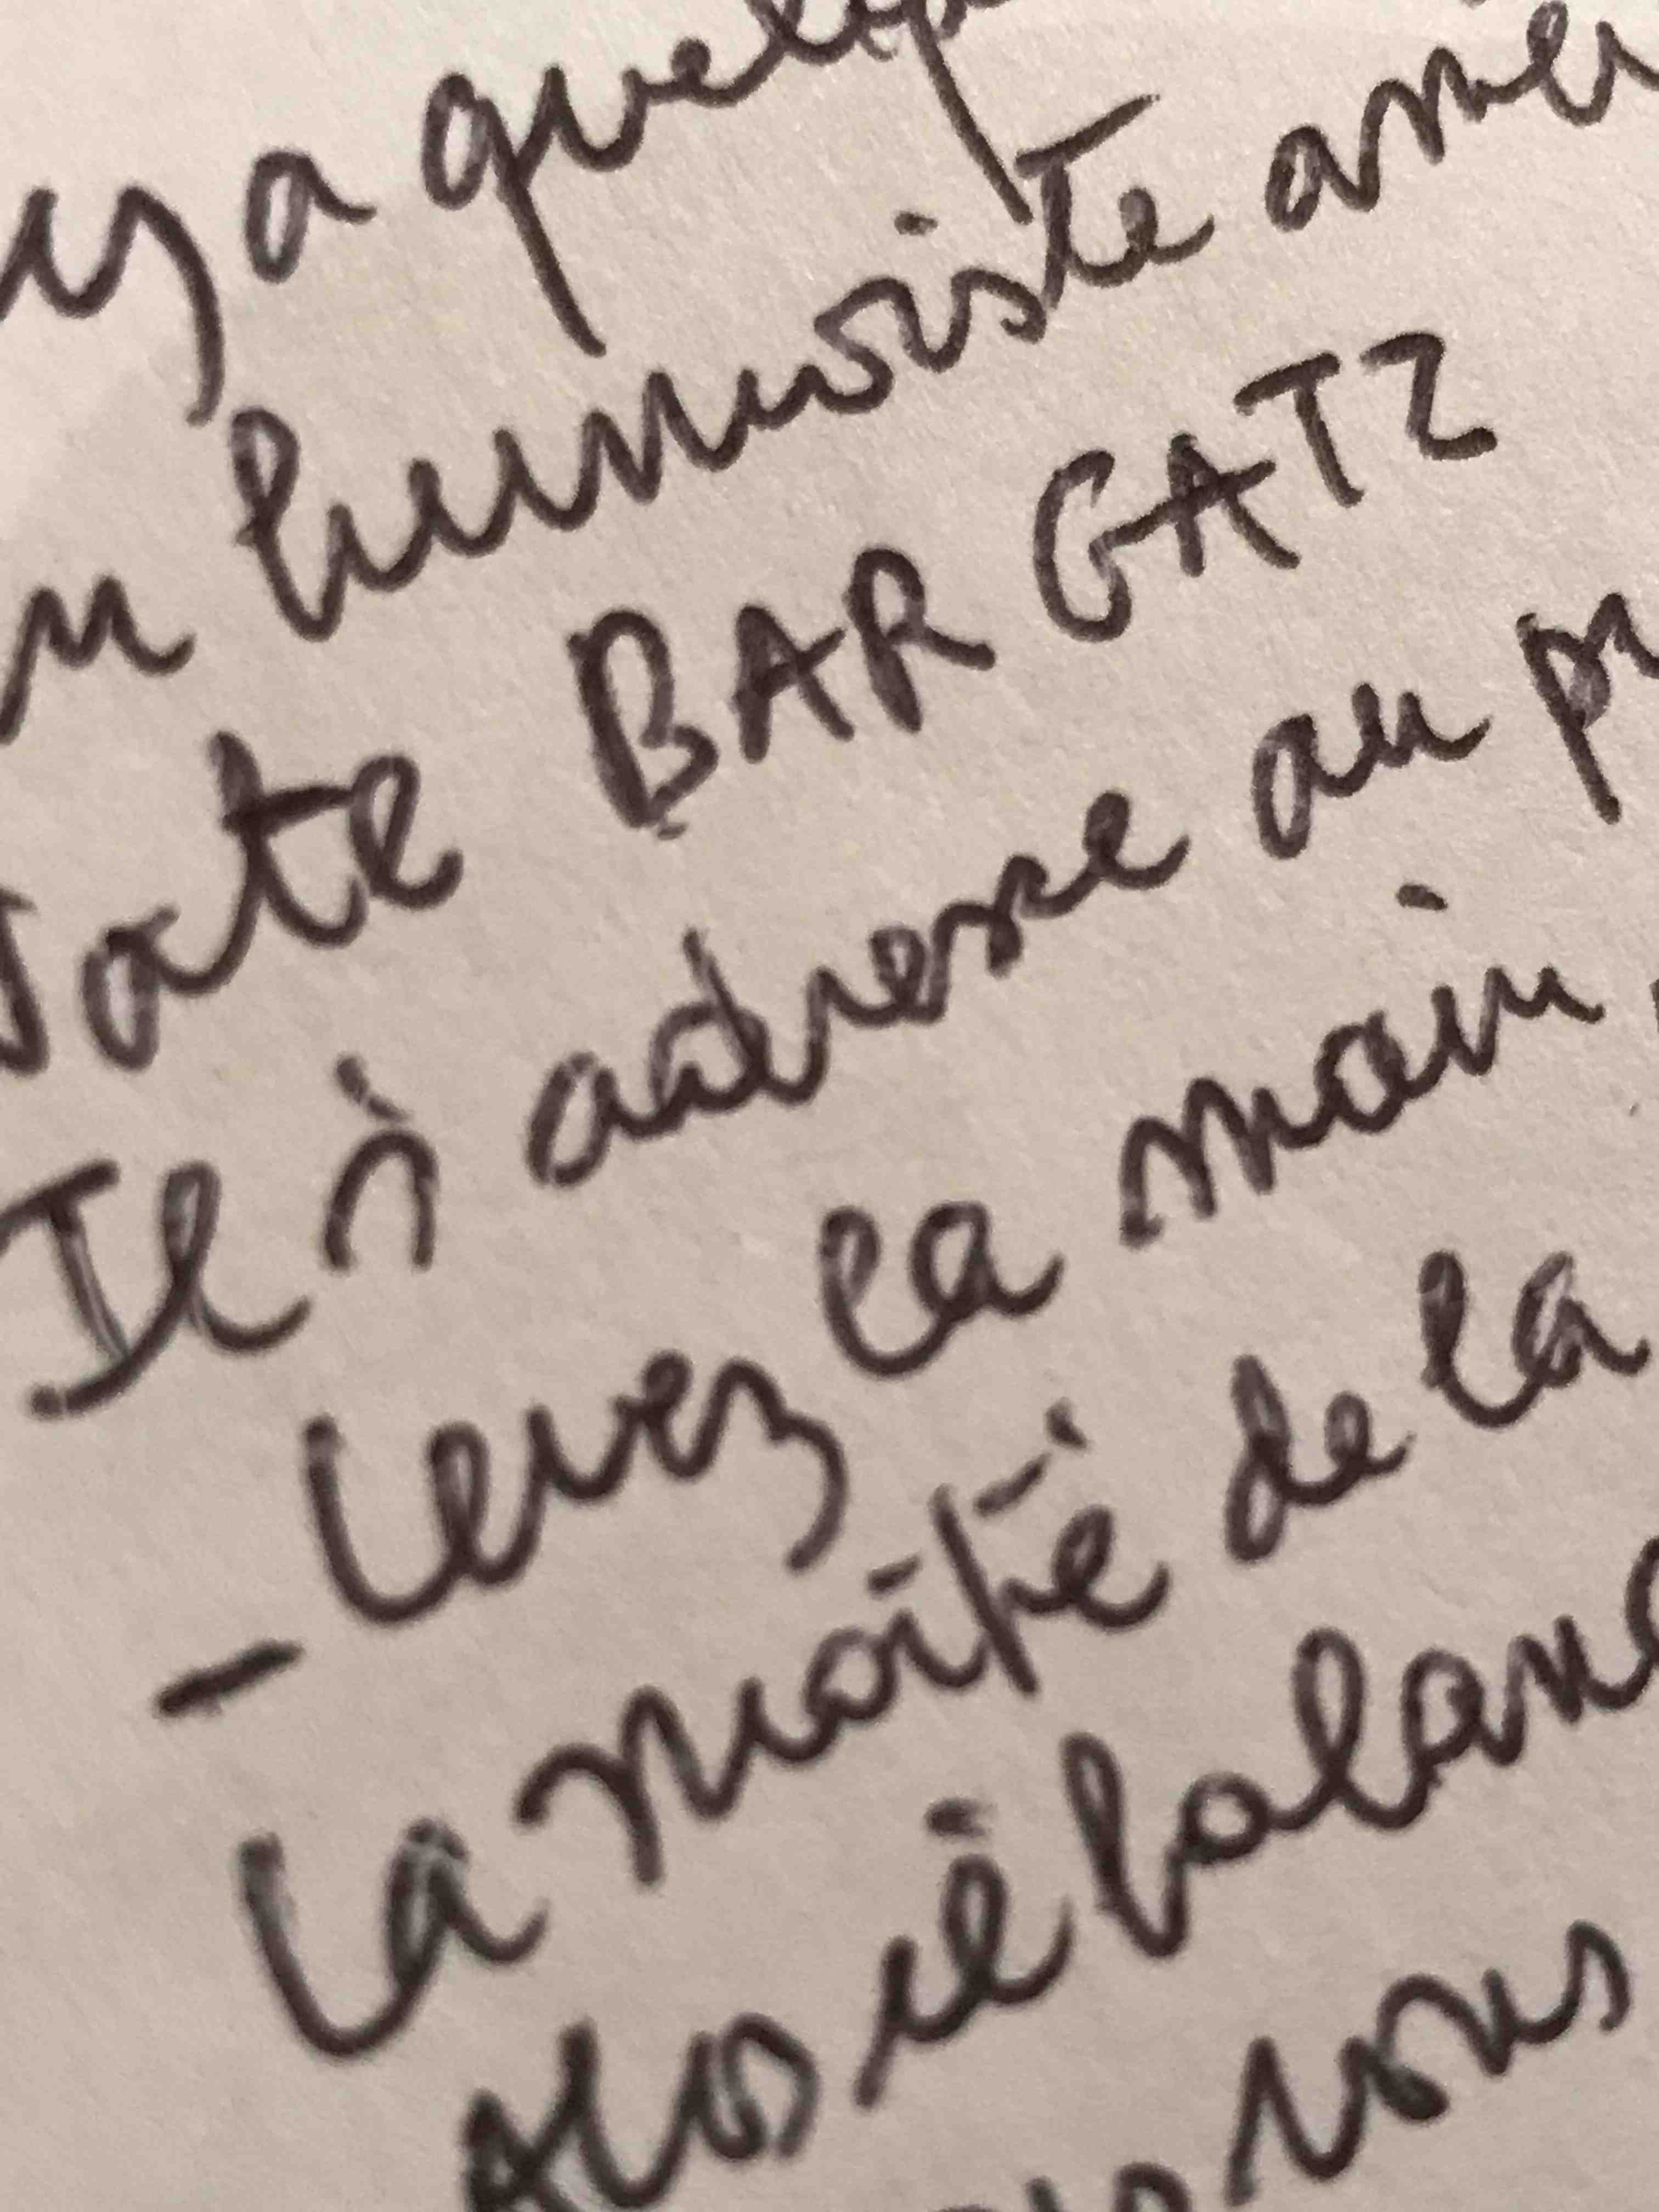 y a quelq
humoriste amér
BARGATZ
Il s'adresse au pu
- Levez la main,
la moitié de la
Alors il balanc
vous